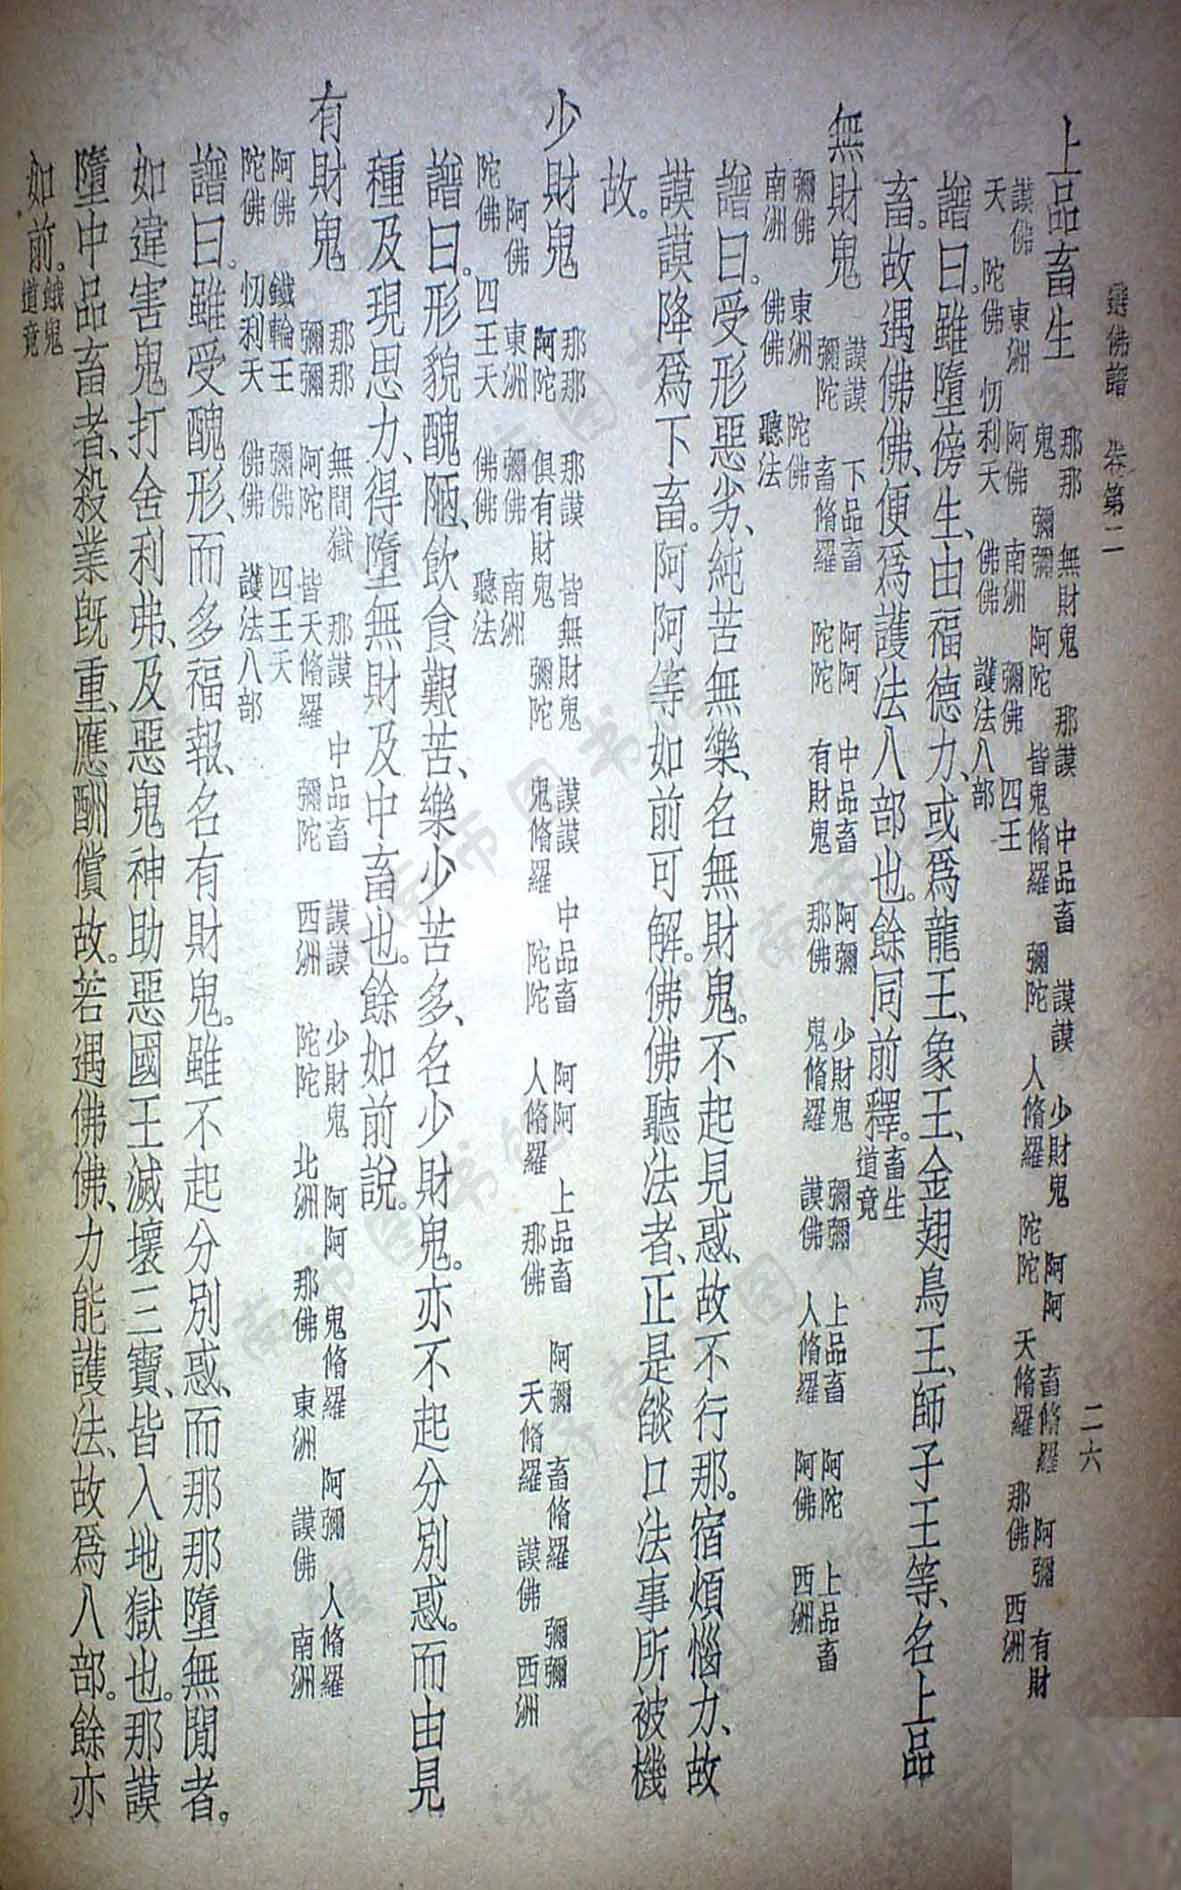 選佛譜 卷第二 二六
上品畜生 那那 無財鬼 那謨 中品畜 謨謨 少財鬼 阿阿 畜脩羅 阿彌 有財
鬼 彌彌 阿陀 皆鬼脩羅 彌陀 人脩羅 陀陀 天脩羅 那佛 西洲
謨佛 東洲 阿佛 南洲 彌佛 四王
天 陀佛 忉利天 佛佛 護法八部
譜曰。雖墮傍生、由福德力、或爲龍王、象王、金翅鳥王、師子王等、名上品
畜。故遇佛佛、便爲護法八部也。餘同前釋。畜生道竟
無財鬼 謨謨 下品畜 阿阿 中品畜 阿彌 少財鬼 彌彌 上品畜 阿陀 上品畜
彌陀 畜脩羅 陀陀 有財鬼 那佛 鬼脩羅 謨佛 人脩羅 阿佛 西洲
彌佛 東洲 陀佛
南洲 佛佛 聽法
譜曰。受形惡劣、純苦無樂、名無財鬼。不起見惑、故不行那。宿煩惱力、故
謨謨降爲下畜。阿阿等如前可解。佛佛聽法者、正是燄口法事所被機
故。
少財鬼 那那 那謨 皆無財鬼 謨謨 中品畜 阿阿 上品畜 阿彌 畜脩羅 彌彌
阿陀 俱有財鬼 彌陀 鬼脩羅 陀陀 人脩羅 那佛 天脩羅 謨佛 西洲
阿佛 東洲 彌佛 南洲
陀佛 四王天 佛佛 聽法
譜曰。形貌醜陋、飲食艱苦、樂少苦多、名少財鬼。亦不起分別惑。而由見
種及現思力、得墮無財及中畜也。餘如前說。
有財鬼 那那 無間獄 那謨 中品畜 謨謨 少財鬼 阿阿 鬼脩羅 阿彌 人脩羅
彌彌 阿陀 皆天脩羅 彌陀 西洲 陀陀 北洲 那佛 東洲 謨佛 南洲
阿佛 鐵輪王 彌佛 四王天
陀佛 忉利天 佛佛 護法八部
譜曰。雖受醜形、而多福報、名有財鬼。雖不起分別惑、而那那墮無間者。
如違害鬼打舍利弗、及惡鬼神助惡國王滅壞三寶、皆入地獄也。那謨
墮中品畜者、殺業旣重、應酬償故。若遇佛佛、力能護法、故爲八部。餘亦
如前。餓鬼道竟